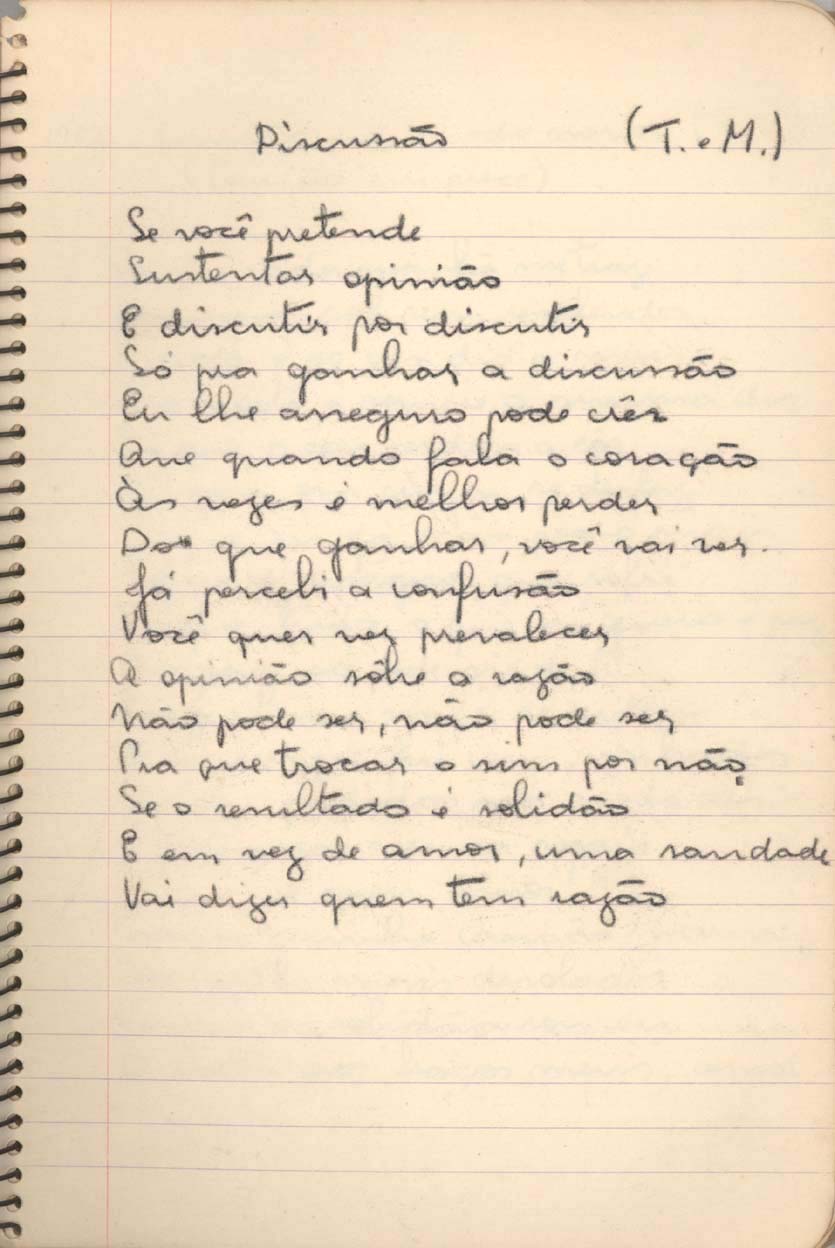 Discussão (T. e M.)
Se você pretende
Sustentar opinião
E discutir por discutir
Só pra ganhar a discussão
Eu lhe asseguro pode crêr
Que quando fala o coração
Às vezes é melhor perder
Do que ganhar, você vai ver.
Já percebi a confusão
Você quer ver prevalecer
A opinião sôbre a razão
Não pode ser, não pode ser
Pra que trocar o sim por não,
Se o resultado é solidão
E em vez de amor, uma saudade
Vai dizer quem tem razão